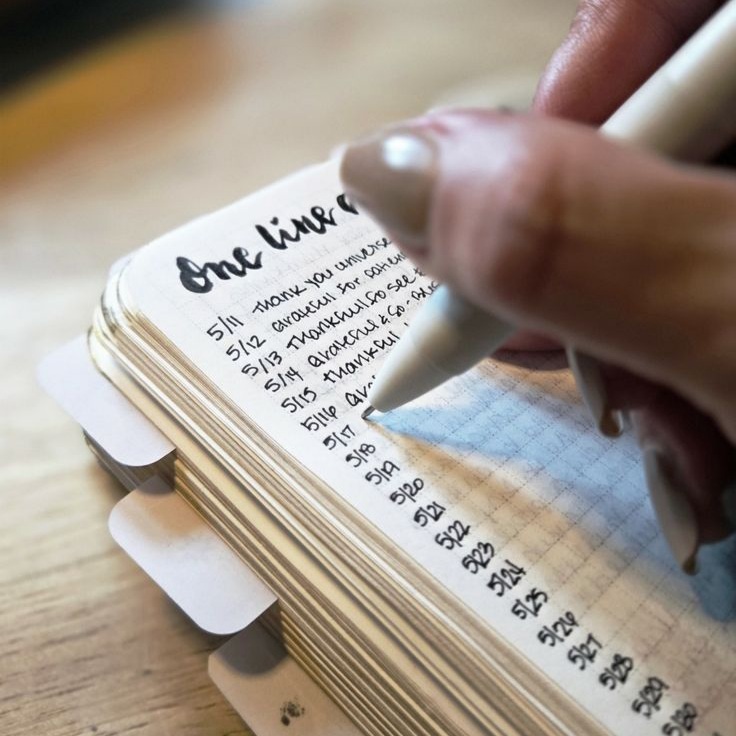 One line a
5/11 Thank you universe
5/12 Grateful for
5/13 Thankful to see
5/14 Grateful &
5/15 Thankful
5/16
5/17
5/18
5/19
5/20
5/21
5/22
5/23
5/24
5/25
5/26
5/27
5/28
5/29
5/30